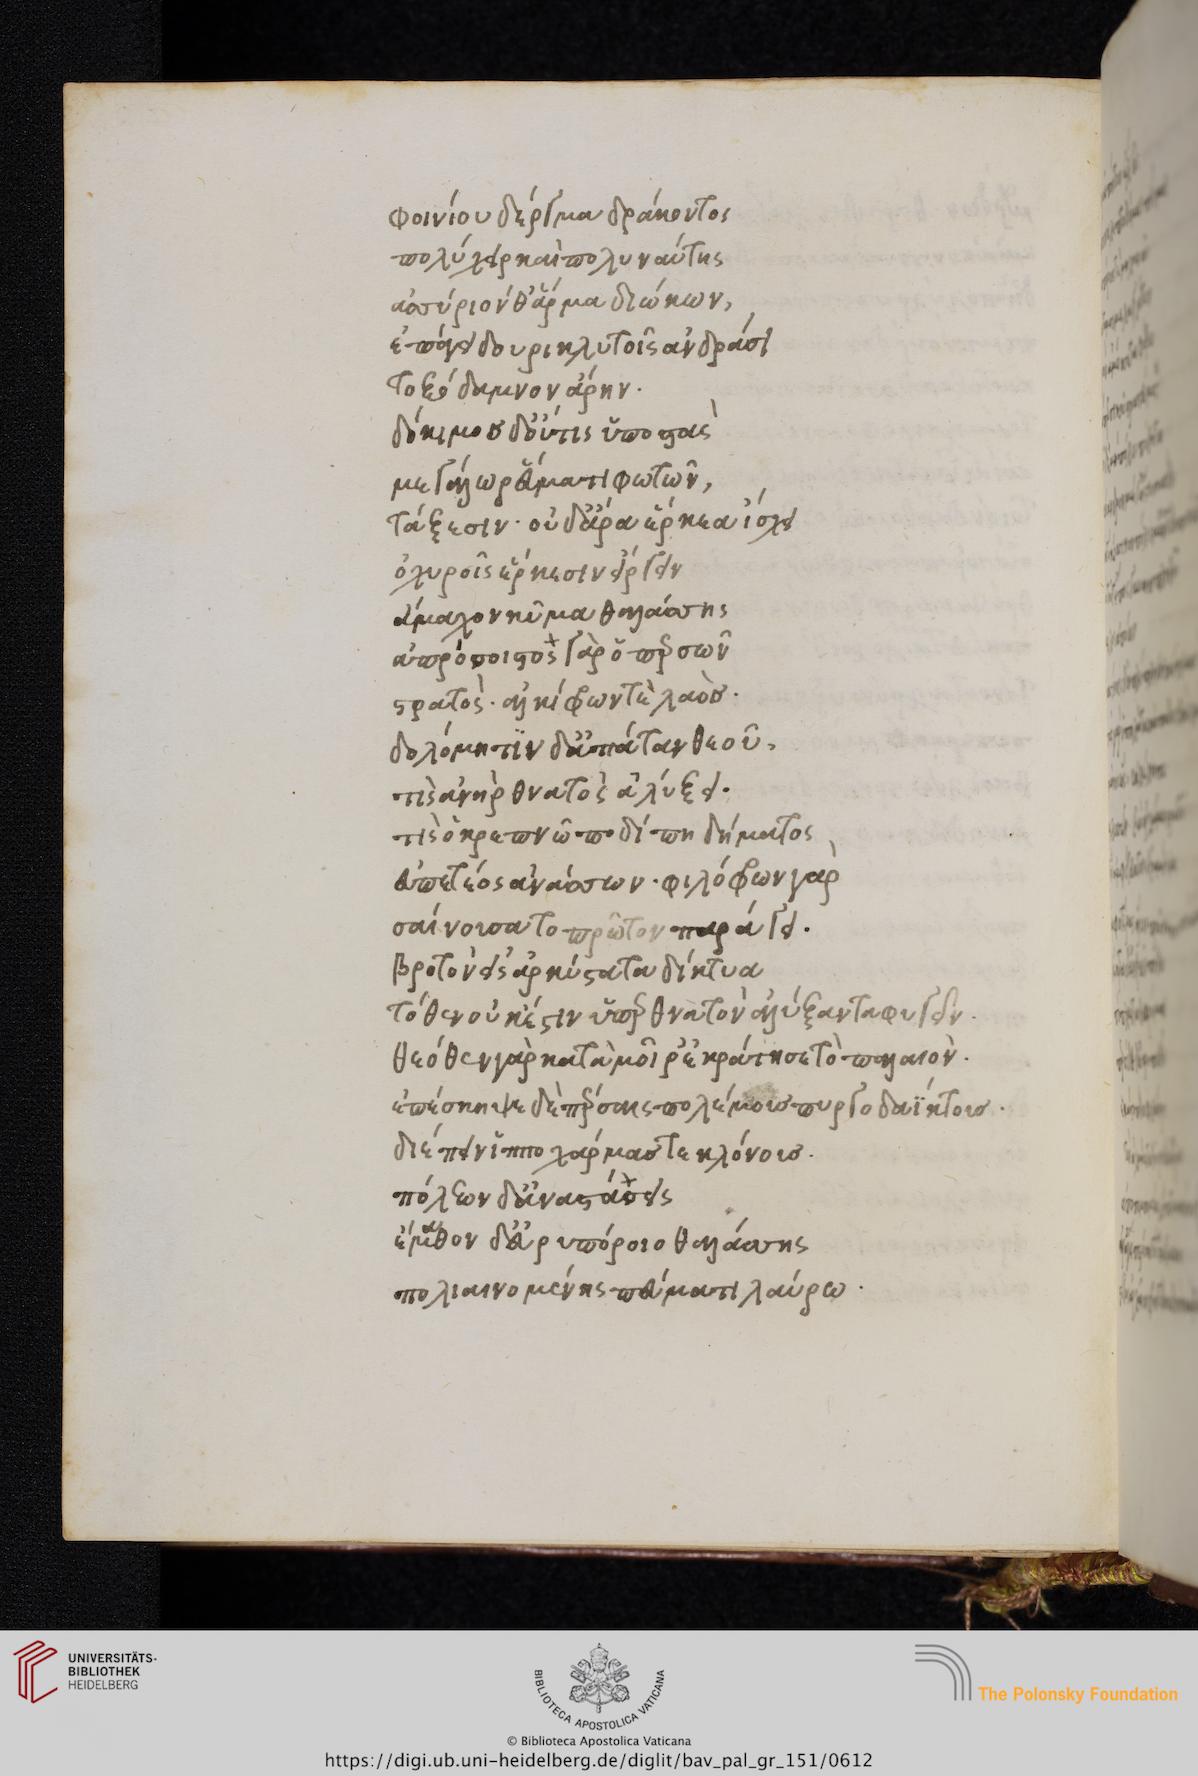 φοινίου δέργμα δράκοντος
πολύχειρ καὶ πολυναύτης
ἀσσύριόν θ' ἅρμα διώκων,
ἐπάγει δουρικλύτοις ἀνδράσι
τοξόδαμνον ἄρην.
δόκιμος δ' οὔτις ὑποστὰς
μεγάλω ῥεύματι φωτῶν,
τάξεσιν. οὐδ' ἄρα ἕρκεα ἴσχει
ὀχυροῖς ἕρκεσιν εἴργειν
ἄμαχον κῦμα θαλάσσης
ἀπρόσοιστος γὰρ ὁ περσῶν
στρατὸς. ἀλκίφρων τὲ λαὸς.
δολόμητιν δ' ἀπάταν θεοῦ,
τις ἀνὴρ θνατὸς ἀλύξει.
τις ὁ κρεπνῶ ποδί πηδήματος
εὐπετέος ἀνάσσων. φιλόφρων γὰρ
σαίνουσα το πρῶτον παράγει.
βροτὸν εἰς ἀρκύστατα δίκτυα
τόθεν οὐκ ἔστιν ὑπὲρ θνατὸν ἀλύξαντα φυγεῖν.
θεόθεν γὰρ κατὰ μοῖρ' ἐκράτησε τὸ παλαιὸν.
ἐπέσκηψε δὲ πέρσαις πολέμους πυργοδαΐκτους.
διέπειν ἱπποχάρμας τε κλόνους.
πόλεων δ' ἀναστάσεις
ἔμαθον δ' εὐρυπόροιο θαλάσσης
πολιαινομένης πνεύματι λαύρω.
UNIVERSITÄTS-
BIBLIOTHEK
HEIDELBERG
BIBLIOTECA APOSTOLICA VATICANA
The Polonsky Foundation
© Biblioteca Apostolica Vaticana
https://digi.ub.uni-heidelberg.de/diglit/bav_pal_gr_151/0612